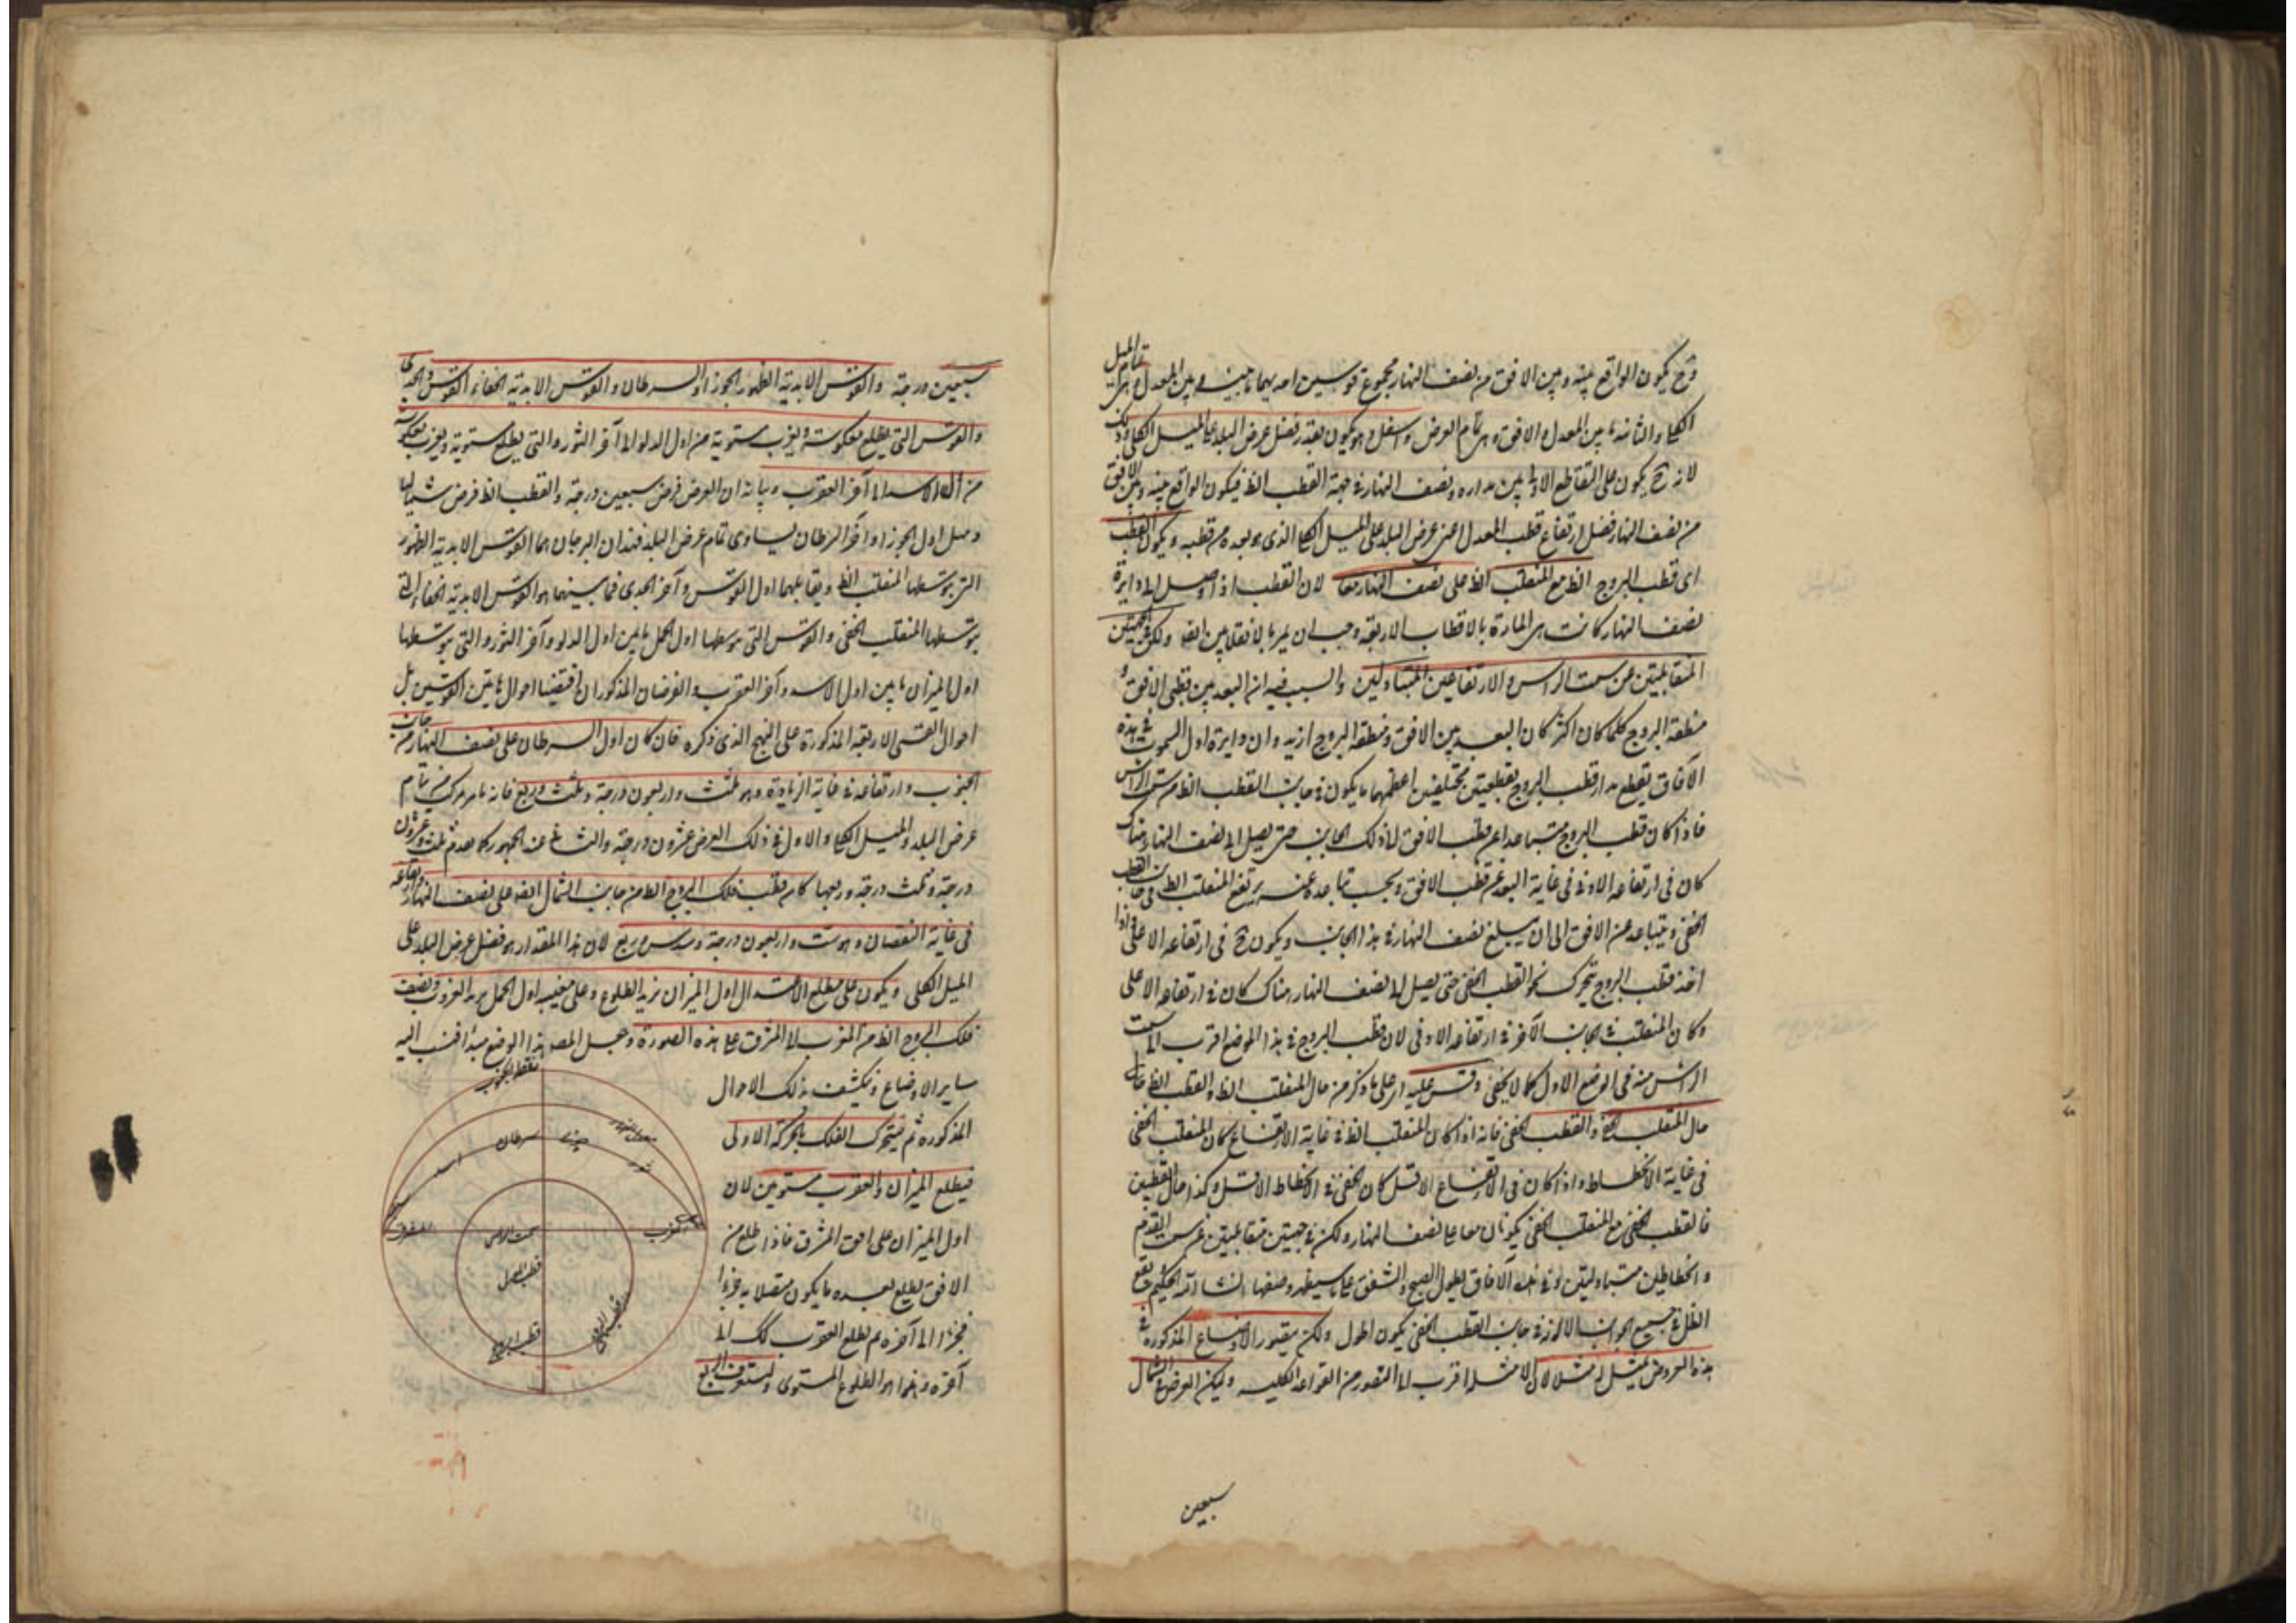 وح يكون الواقع بينه وبين الافق من نصف النهار مجموع قوسين احديهما ما بينه وبين المعدل وهى تمام الميل
الكلى والثانية ما بين المعدل والافق وهى تمام العرض واسفل وهو يكون بقدر فضل عرض البلد على الميل الكلى وذلك
لانه ح يكون على التقاطع الادنى بين مداره ونصف النهار فى جهة القطب الظ فيكون الواقع بينه وبين الافق
من نصف النهار فضل ارتفاع قطب المعدل اعنى عرض البلد على الميل الكلى الذى هو بعده من قطبه ويكون القطب
اى قطب البروج الظ مع المنقلب الظ على نصف النهار معا لان القطب اذا وصل الى دايرة
نصف النهار كانت هى المارة بالاقطاب الاربعة وجب ان يمر بالانقلابين ايضا ولكن فى الجهتين
المتقابلتين عن سمت الراس والارتفاعين المتبادلين والسبب فيه ان البعد بين قطبى الافق و
منطقة البروج كلما كان اكثر كان البعد بين الافق ومنطقة البروج ازيد وان دايرة اول السموت فى هذه
الآفاق يقطع مدار قطب البروج بقطعتين مختلفتين اعظمهما ما يكون فى جانب القطب الظ من سمت الراس
فاذا كان قطب البروج متباعدا عن قطب الافق الى ذلك الجانب حتى يصل الى نصف النهار هناك
كان فى ارتفاعه الادنى فى غاية البعد عن قطب الافق وبحسب تباعده عنه يرتفع المنقلب الظ فى جانب القطب
الخفى ويتباعد عن الافق الى ان يبلغ نصف النهار فى هذا الجانب ويكون ح فى ارتفاعه الاعلى واذا
اخذ قطب البروج يتحرك نحو القطب الخفى حتى يصل الى نصف النهار هناك كان فى ارتفاعه الاعلى
وكان المنقلب فى الجانب الآخر فى ارتفاعه الادنى لان قطب البروج فى هذا الموضع اقرب الى سمت
الراس منه فى الوضع الاول كما لا يخفى وقس عليه اى على ما ذكر من حال المنقلب الظ والقطب الظ
حال المنقلب الخفى والقطب الخفى فانه اذا كان المنقلب الظ فى غاية الارتفاع كان المنقلب الخفى
فى غاية الانحطاط واذا كان فى الارتفاع الاقل كان الخفى فى الانحطاط الاقل وكذا حال القطبين
فالقطب الخفى مع المنقلب الخفى يكونان معا على نصف النهار ولكن فى جهتين متقابلتين عن سمت القدم
وانحطاطين متبادلين وفى هذه الآفاق يطول الصبح والشفق على ما سيظهر
الظل فى جميع الجوانب الا انه فى جانب القطب الخفى يكون اطول ولكن يتصور الاوضاع المذكورة فى
هذه العروض نمثل له مثالا لان الامثلة اقرب الى التصور من القواعد الكلية وليكن العرض فى الشمال
سبعين
سبعين درجة والقوس الابدية الظهور الجوزاء والسرطان والقوس الابدية الخفاء القوس والجدى
والقوس التى يطلع معكوسة ويغرب مستوية من اول الدلو الى آخر الثور والتى يطلع مستوية ويغرب معكوسة
من اول الاسد الى آخر العقرب وبيانه ان العرض فرض سبعين درجة والقطب الظ فرض شماليا
وميل اول الجوزاء وآخر السرطان يساوى تمام عرض البلد فهذان البرجان هما القوس الابدية الظهور
التى يتوسطها المنقلب الظ ويقابلهما اول القوس وآخر الجدى فما بينهما هو القوس الابدية الخفاء التى
يتوسطها المنقلب الخفى والقوس التى يتوسطها اول الحمل ما بين اول الدلو وآخر الثور والتى يتوسطها
اول الميزان ما بين اول الاسد وآخر العقرب والفرضان المذكوران اقتضيا احوال هاتين القوسين بل
احوال القسى الاربعة المذكورة على النهج الذى ذكره فان كان اول السرطان على نصف النهار من جانب
الجنوب وارتفاعه فى غاية الزيادة وهو ثلث واربعون درجة وثلث وربع فانه مركب من تمام
عرض البلد والميل الكلى والاول فى ذلك العرض عشرون درجة والثانى عند الجمهور كما تقدم ثلث وعشرون
درجة وثلث درجة وربعها كان قطب فلك البروج الظ من جانب الشمال ايضا على نصف النهار وارتفاعه
فى غاية النقصان وهو ست واربعون درجة وسدس وربع لان هذا المقدار هو فضل عرض البلد على
الميل الكلى ويكون على مطلع الاعتدال اول الميزان يريد الطلوع وعلى مغيبه اول الحمل يريد الغروب ونصف
فلك البروج الظ من المغرب الى المشرق على هذه الصورة وجعل المصـ هذا الوضع مبدا فنسب اليه
ساير الاوضاع وتكشف بذلك الاحوال
المذكورة ثم يتحرك الفلك بالحركة الاولى
فيطلع الميزان والعقرب مستويين لان
اول الميزان على افق المشرق فاذا طلع من
الافق يطلع بعده ما يكون متصلا به جزءا
فجزءا الى آخره ثم يطلع العقرب كك الى
آخره وهذا هو الطلوع المستوى
نقطة الجنوب
سرطان
جوزا
اسد
ثور
المشرق
المغرب
سمت الراس
قطب المعدل
قطب البروج